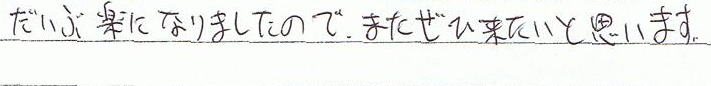 だいぶ楽になりましたので、またぜひ来たいと思います。